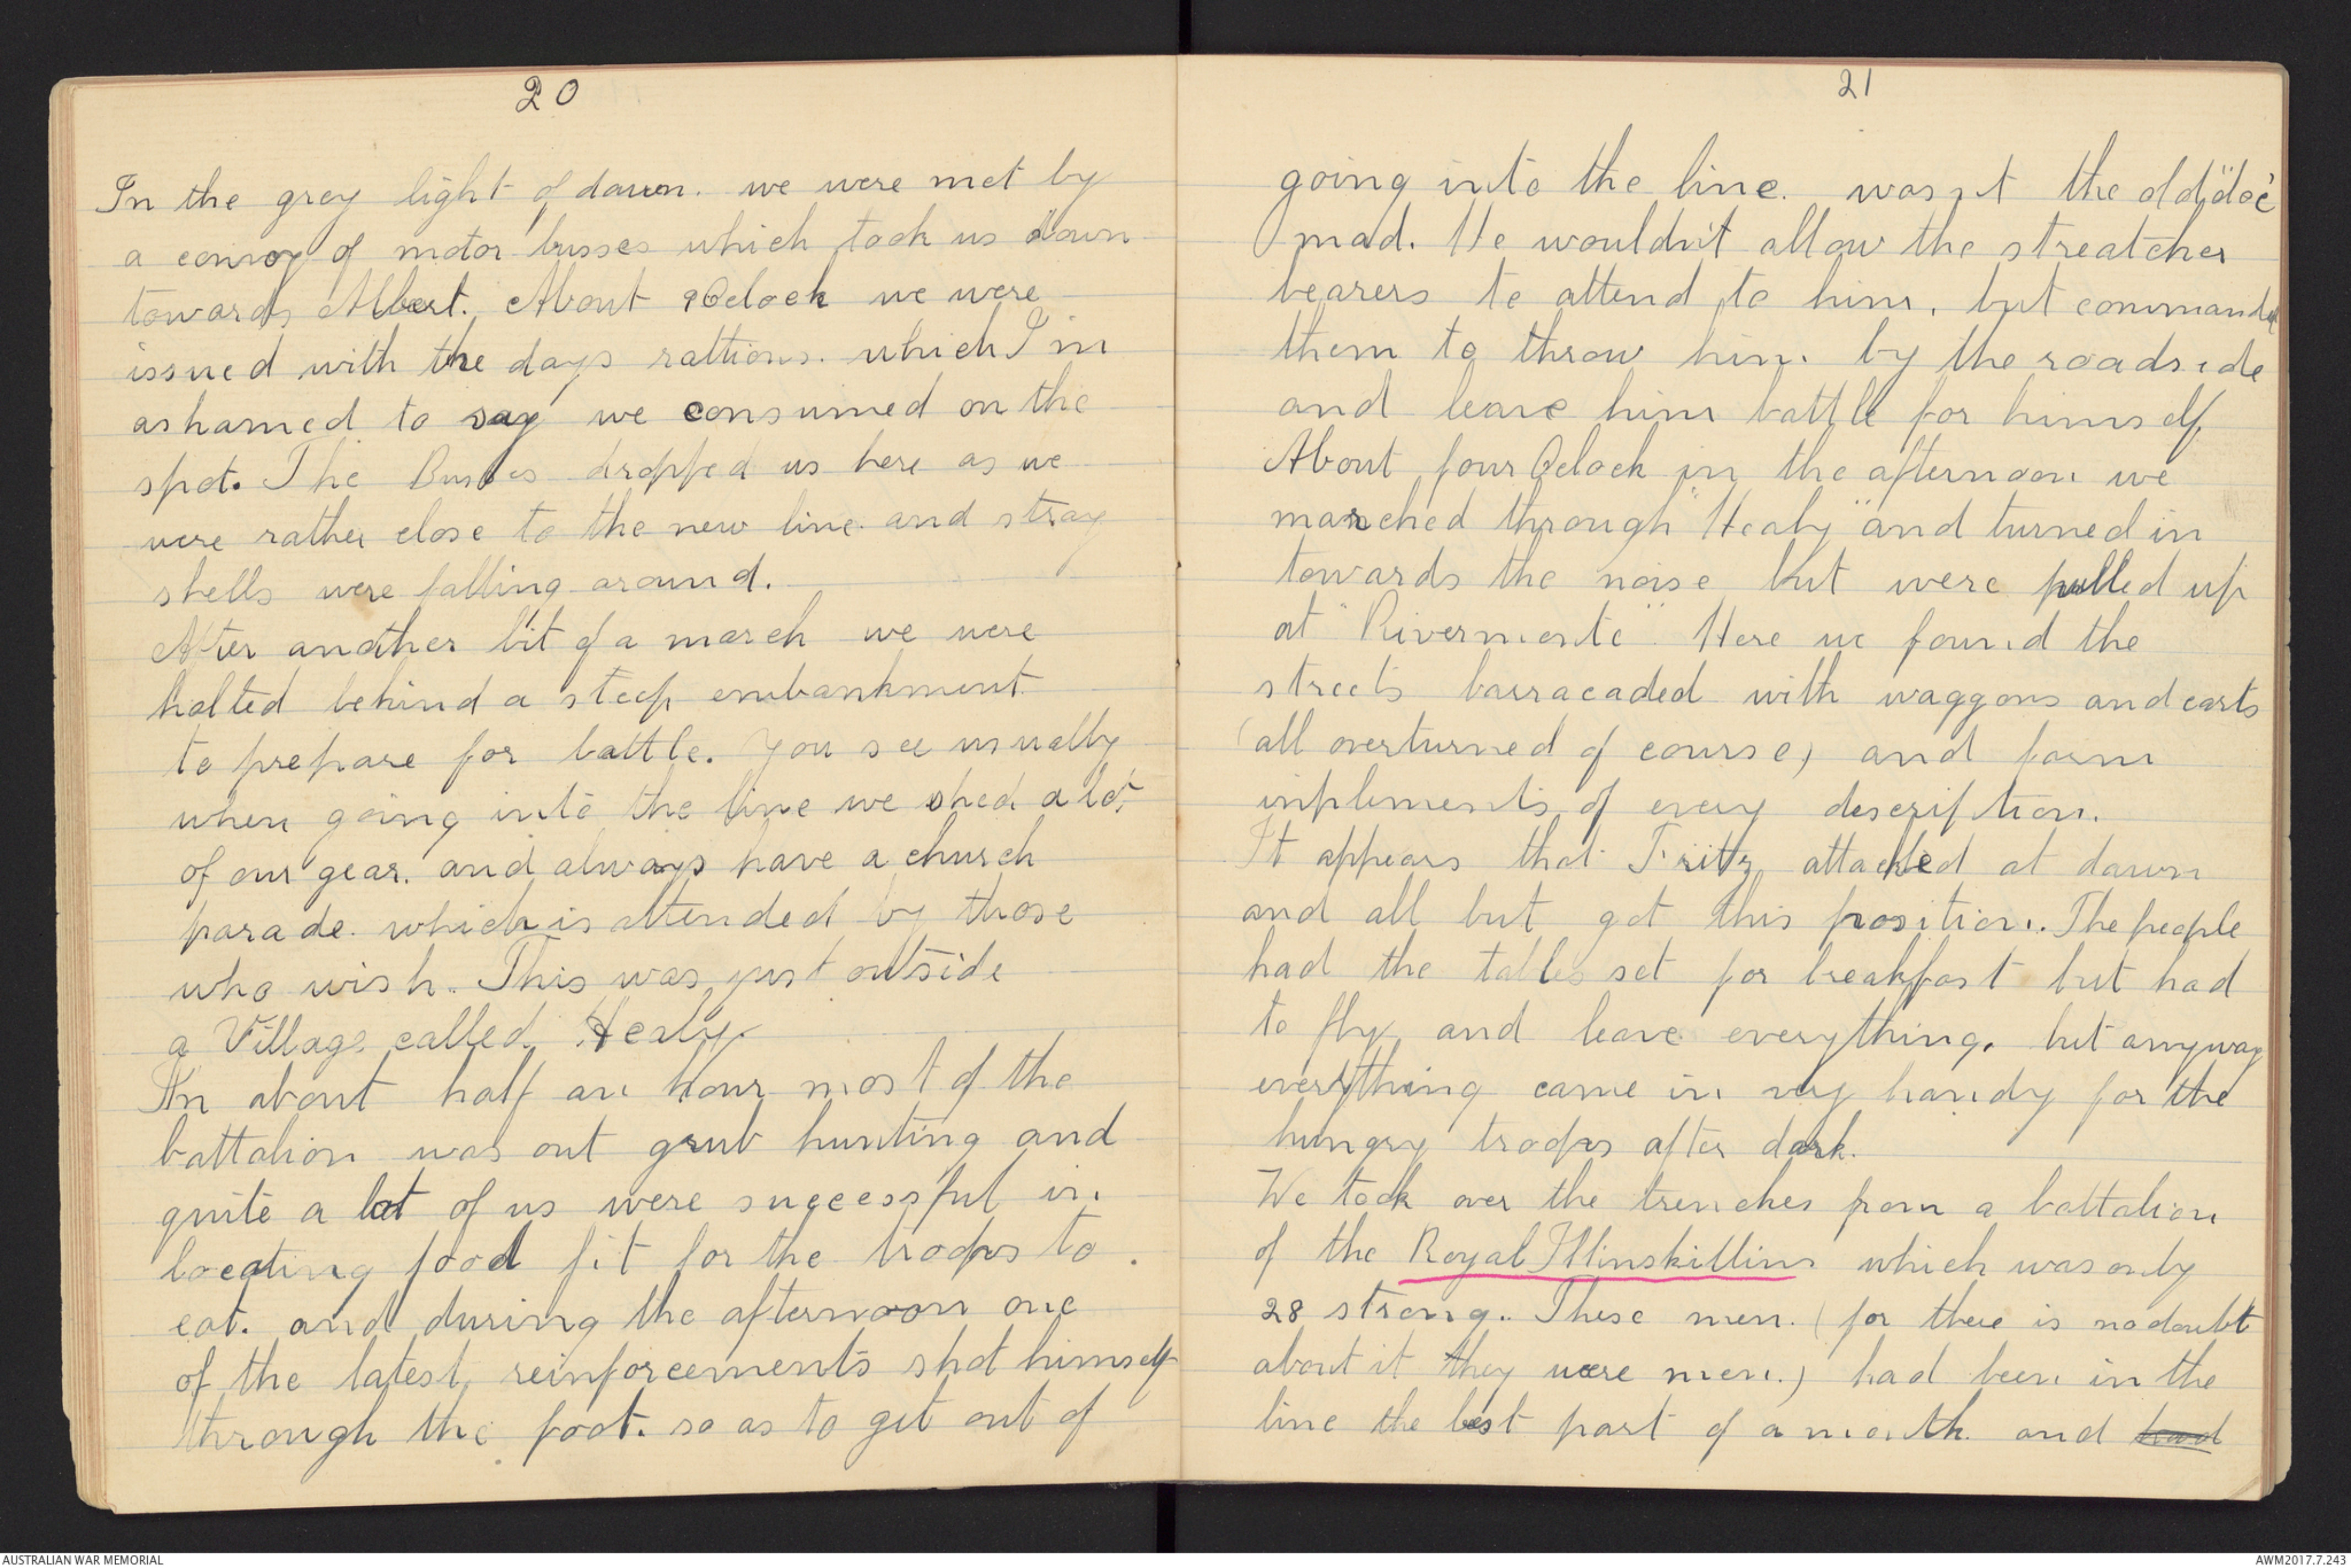 20
In the grey light of dawn. we were met by
a convoy of motor busses which took us down
towards Albert. About 9 Oclock we were
issued with the days rattions. which I'm
ashamed to say we consumed on the
spot. The Busses dropped us here as we
were rather close to the new line and stray
shells were falling around.
After another bit of a march we were
halted behind a steep embankment
to prepare for battle. You see usually
when going into the line we shed a lot
of our gear. and always have a church
parade. which is attended by those
who wish. This was just outside
a Village called Healy
In about half an hour most of the
battalion was out grub hunting and
quite a lot of us were successful in
locating food fit for the troops to
eat. and during the afternoon one
of the latest reinforcements shot himself
through the foot. so as to get out of
21
going into the line. wasnt the old "doc"
mad. He wouldn't allow the streatcher
bearers to attend to him, but commanded
them to throw him by the roadside
and leave him battle for himself
About four Oclock in the afternoon we
marched through "Healy" and turned in
towards the noise but were pulled up
at "Rivermonte". Here we found the
streets barracaded with waggons and carts
(all overturned of course) and farm
implements of every description.
It appears that Fritz attacked at dawn
and all but got this position. The people
had the tables set for breakfast but had
to fly and leave everything. but anyway
everything came in very handy for the
hungry troops after dark.
We took over the trenches from a battalion
of the Royal Illinskillins which was only
28 strong. These men. (for there is no doubt
about it they were men.) had been in the
line the best part of a month. and had
AUSTRALIAN WAR MEMORIAL
AWM2017.7.243